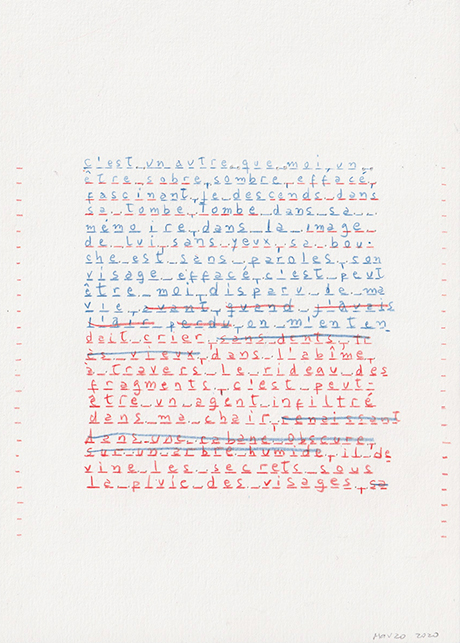 c'est un autre que moi, un
être sobre, sombre, effacé,
fascinant, je descends dans
sa tombe, tombe dans sa
mémoire, dans la image
de lui sans yeux, sa bou-
che est sans paroles, son
visage effacé, c'est peut
être moi disparu de ma
vie, avant, quand j'avais
l'air perdu, on m'enten
dait crier, sans dents, ti
es vieux, dans l'abîme,
à travers le rideau des
fragments, c'est peut-
être un agent infiltré
dans ma chair, renaissant
dans une cabane obscure,
sur un arbre humide, il de
vine les secrets sous
la pluie des visages, sa
2020